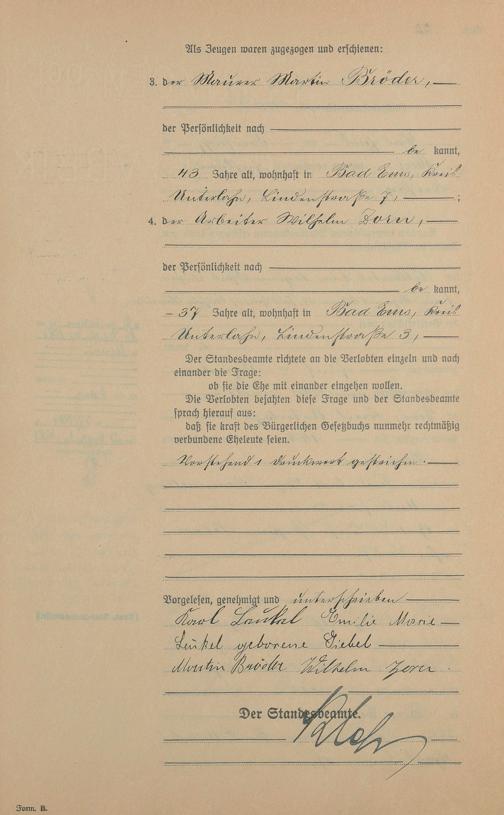 Als Zeugen waren zugezogen und erschienen:
3. der Maurer Martin Bröder,
der Persönlichkeit nach
be kannt,
43 Jahre alt, wohnhaft in Bad Ems, Kreis
Unterlahn, Lindenstraße 7,
4. der Arbeiter Wilhelm Zorer,
der Persönlichkeit nach
be kannt,
37 Jahre alt, wohnhaft in Bad Ems, Kreis
Unterlahn, Lindenstraße 3,
Der Standesbeamte richtete an die Verlobten einzeln und nach
einander die Frage:
ob sie die Ehe mit einander eingehen wollen.
Die Verlobten bejahten diese Frage und der Standesbeamte
sprach hierauf aus:
daß sie kraft des Bürgerlichen Gesetzbuchs nunmehr rechtmäßig
verbundene Eheleute seien.
Vorstehend 1 Druckwort gestrichen.
Vorgelesen, genehmigt und unterschrieben
Karl Emilie Marie
geborene Diebel
Martin Bröder Wilhelm Zorer.
Der Standesbeamte.
Form. B.